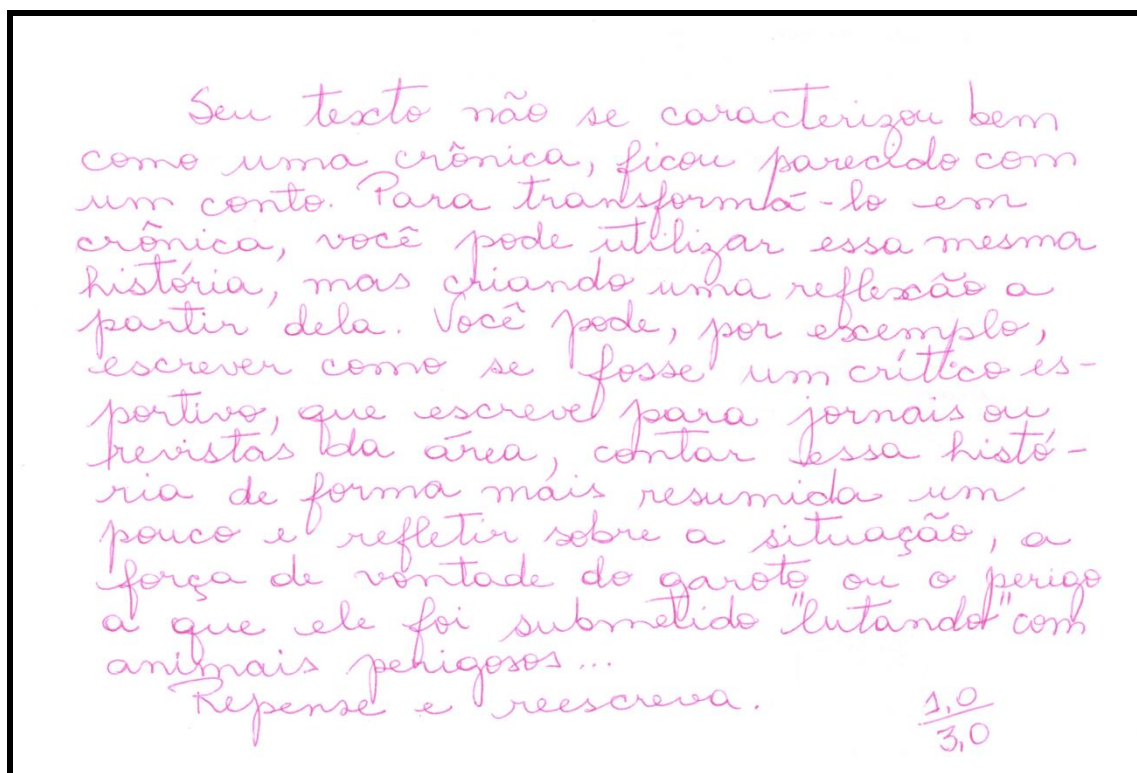 Seu texto não se caracterizou bem
como uma crônica, ficou parecido com
um conto. Para transformá-lo em
crônica, você pode utilizar essa mesma
história, mas criando uma reflexão a
partir dela. Você pode, por exemplo,
escrever como se fosse um crítico es-
portivo, que escreve para jornais ou
revistas da área, contar essa histó-
ria de forma mais resumida um
pouco e refletir sobre a situação, a
força de vontade do garoto ou o perigo
a que ele foi submetido "lutando" com
animais perigosos...
Repense e reescreva.
1,0
3,0